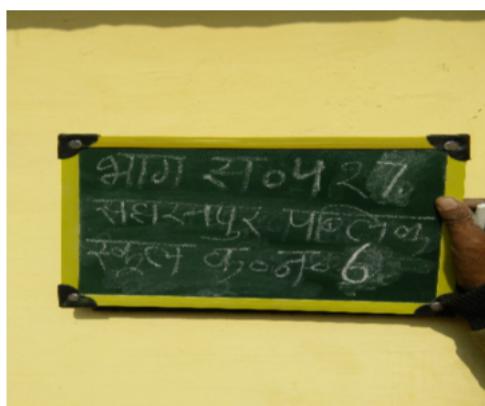 भाग स०५२7
सहारनपुर पब्लिक
स्कूल क०न०6